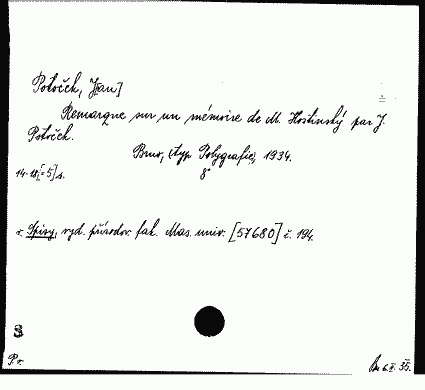 Potoček, J[an]
Remarque sur un mémoire de M. Hostinský par J.
Potoček.
Brno, (typ. Polygrafie), 1934.
8°
14-18[=5] s.
v. Spisy, vyd. přírodov. fak. Mas. univ. [57680] č. 194.
S
Pr.